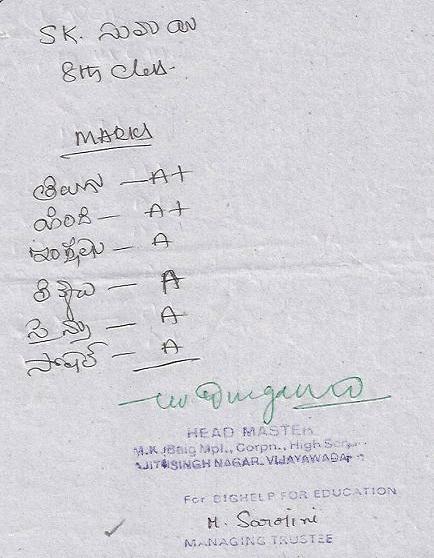 SK. సుమయ
8th Class.
MARKS
తెలుగు — A+
హింది — A+
ఇంగ్లీషు — A
లెక్కలు — A
సైన్సు — A
సోషల్ — A
HEAD MASTER
M.K. Baig Mpl., Corpn., High
AJITHSINGH NAGAR, VIJAYAWADA
For BIGHELP FOR EDUCATION
M. Sarojini
MANAGING TRUSTEE